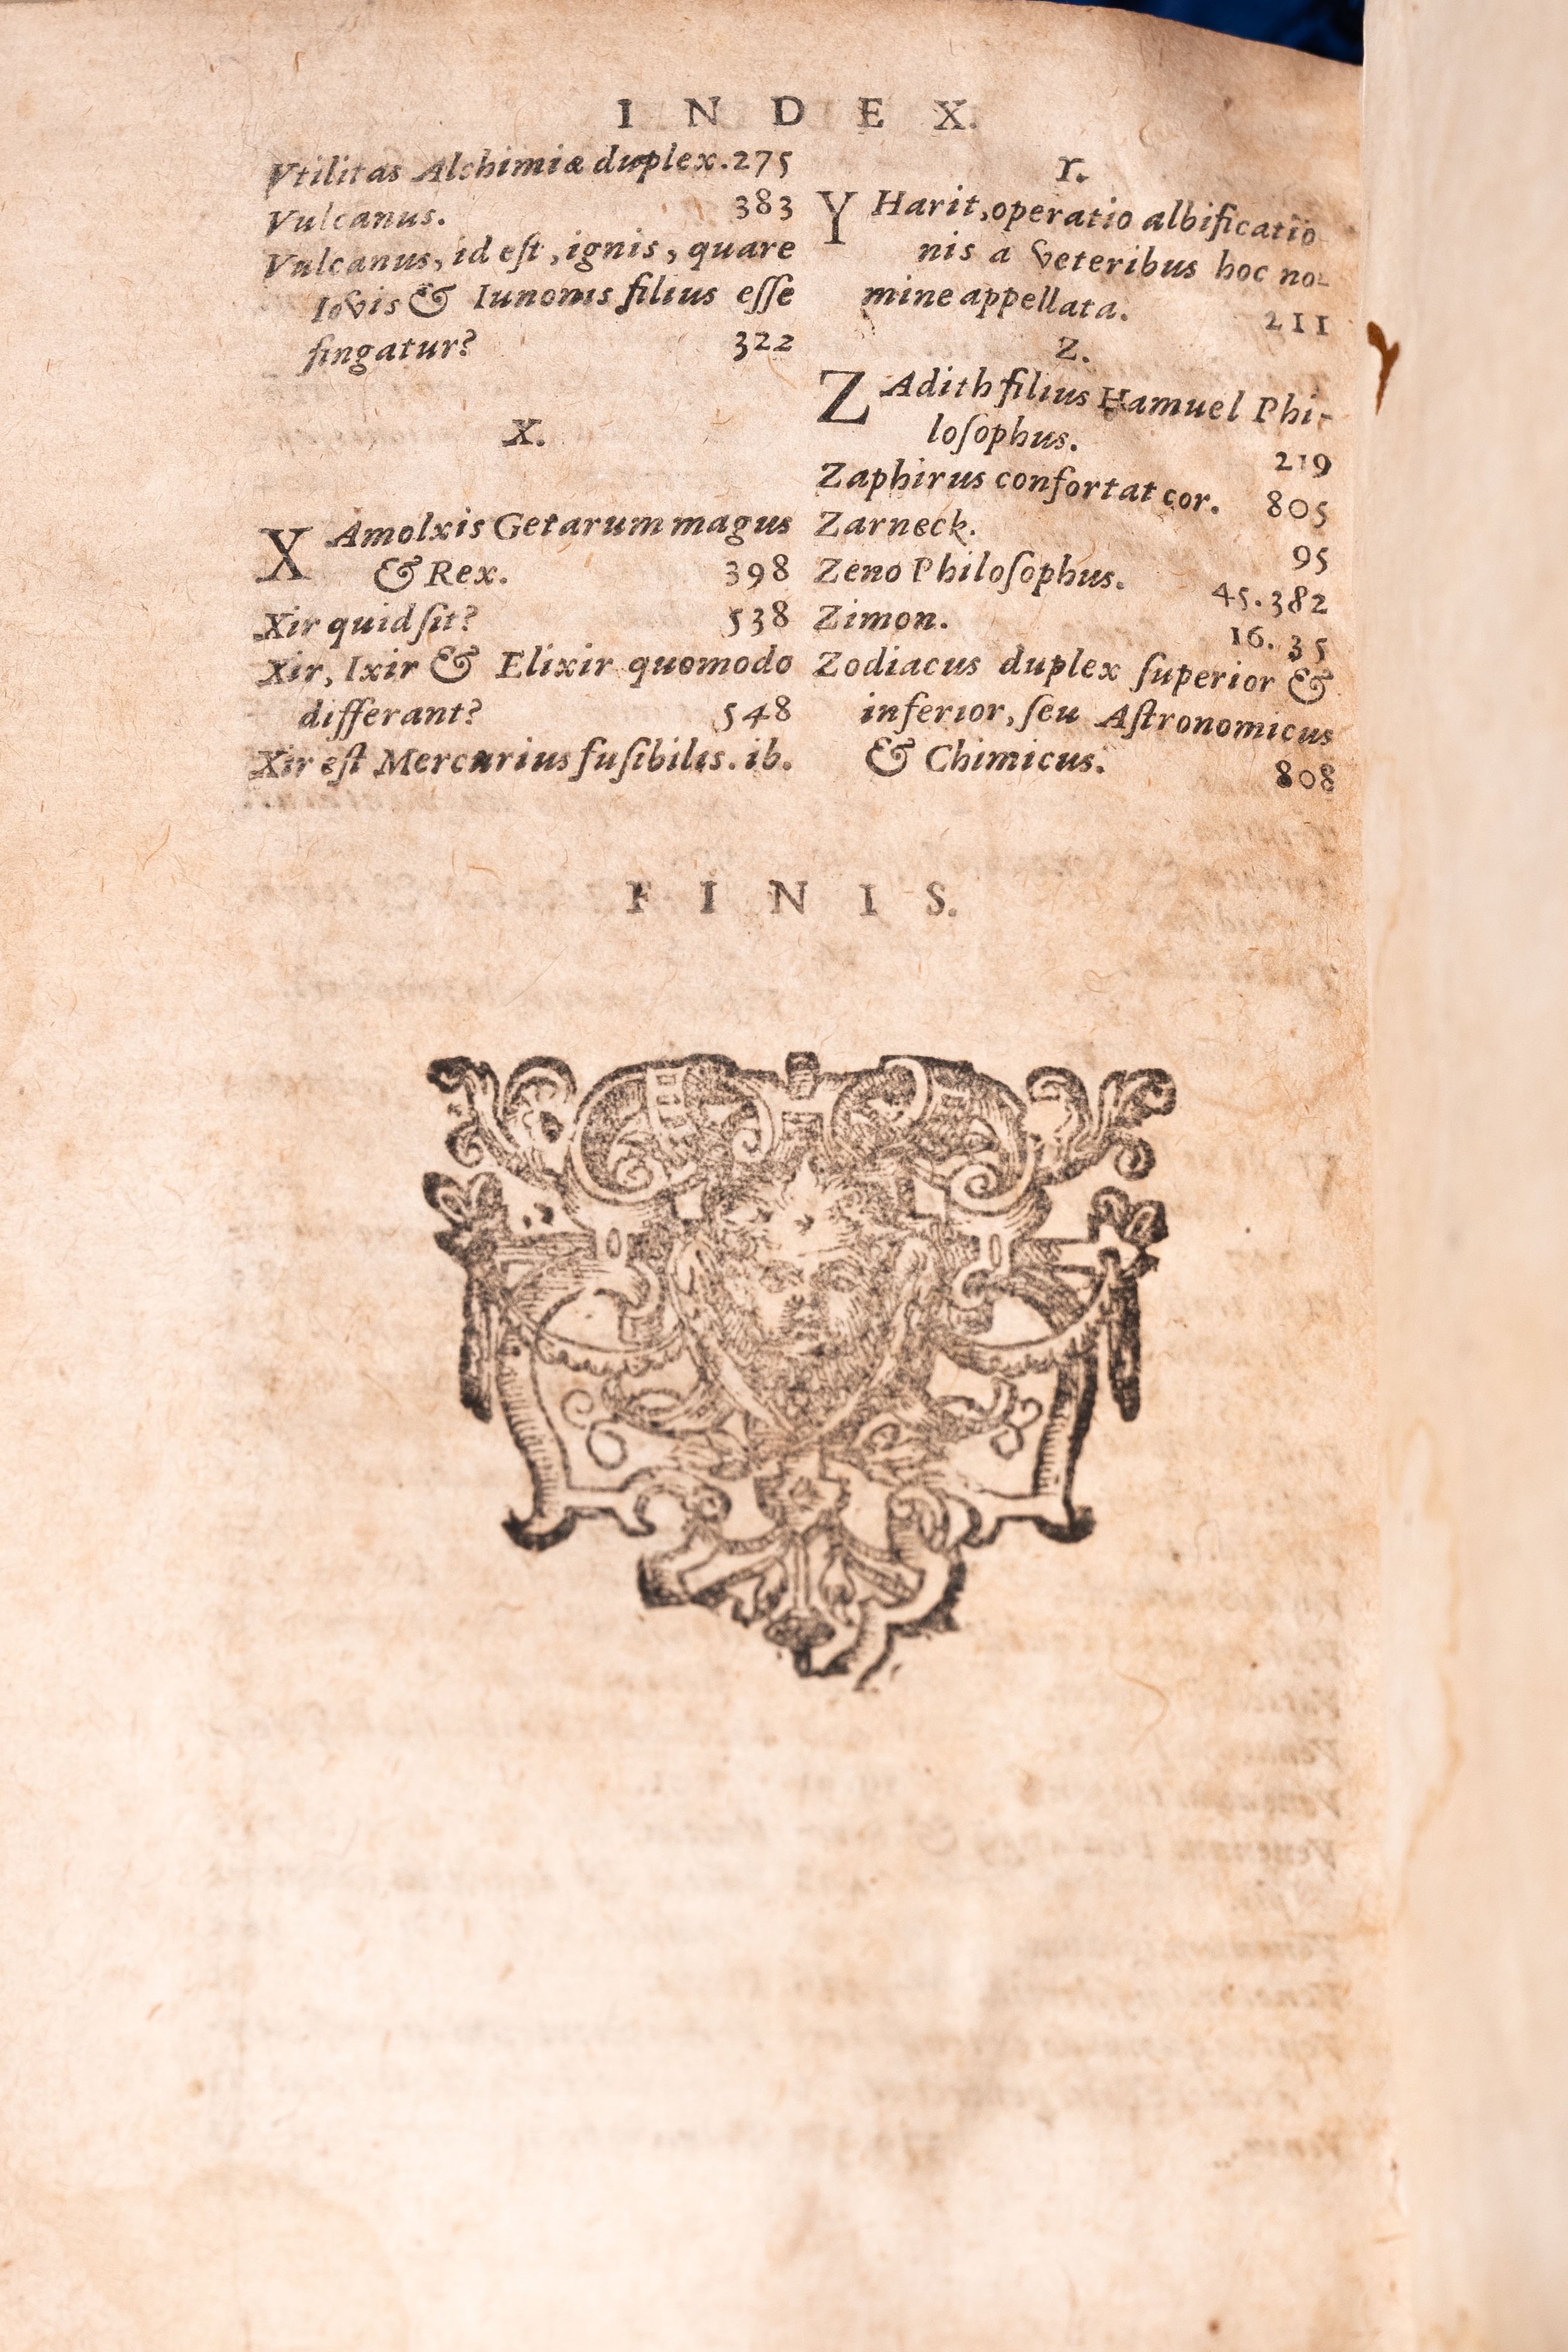 INDEX.
Vtilitas Alchimiæ duplex. 275
Vulcanus. 383
Vulcanus, id eſt, ignis, quare
Iovis & Iunonis filius eſſe
fingatur? 322
X.
XAmolxis Getarum magus
& Rex. 398
Xir quid ſit? 538
Xir, Ixir & Elixir quomodo
differant? 548
Xir eſt Mercurius fuſibilis. ib.
Y.
YHarit, operatio albificatio-
nis a veteribus hoc no-
mine appellata. 211
Z.
ZAdith filius Hamuel Phi-
loſophus. 219
Zaphirus confortat cor. 805
Zarneck. 95
Zeno Philoſophus. 45. 382
Zimon. 16. 35
Zodiacus duplex ſuperior &
inferior, ſeu Aſtronomicus
& Chimicus. 808
FINIS.